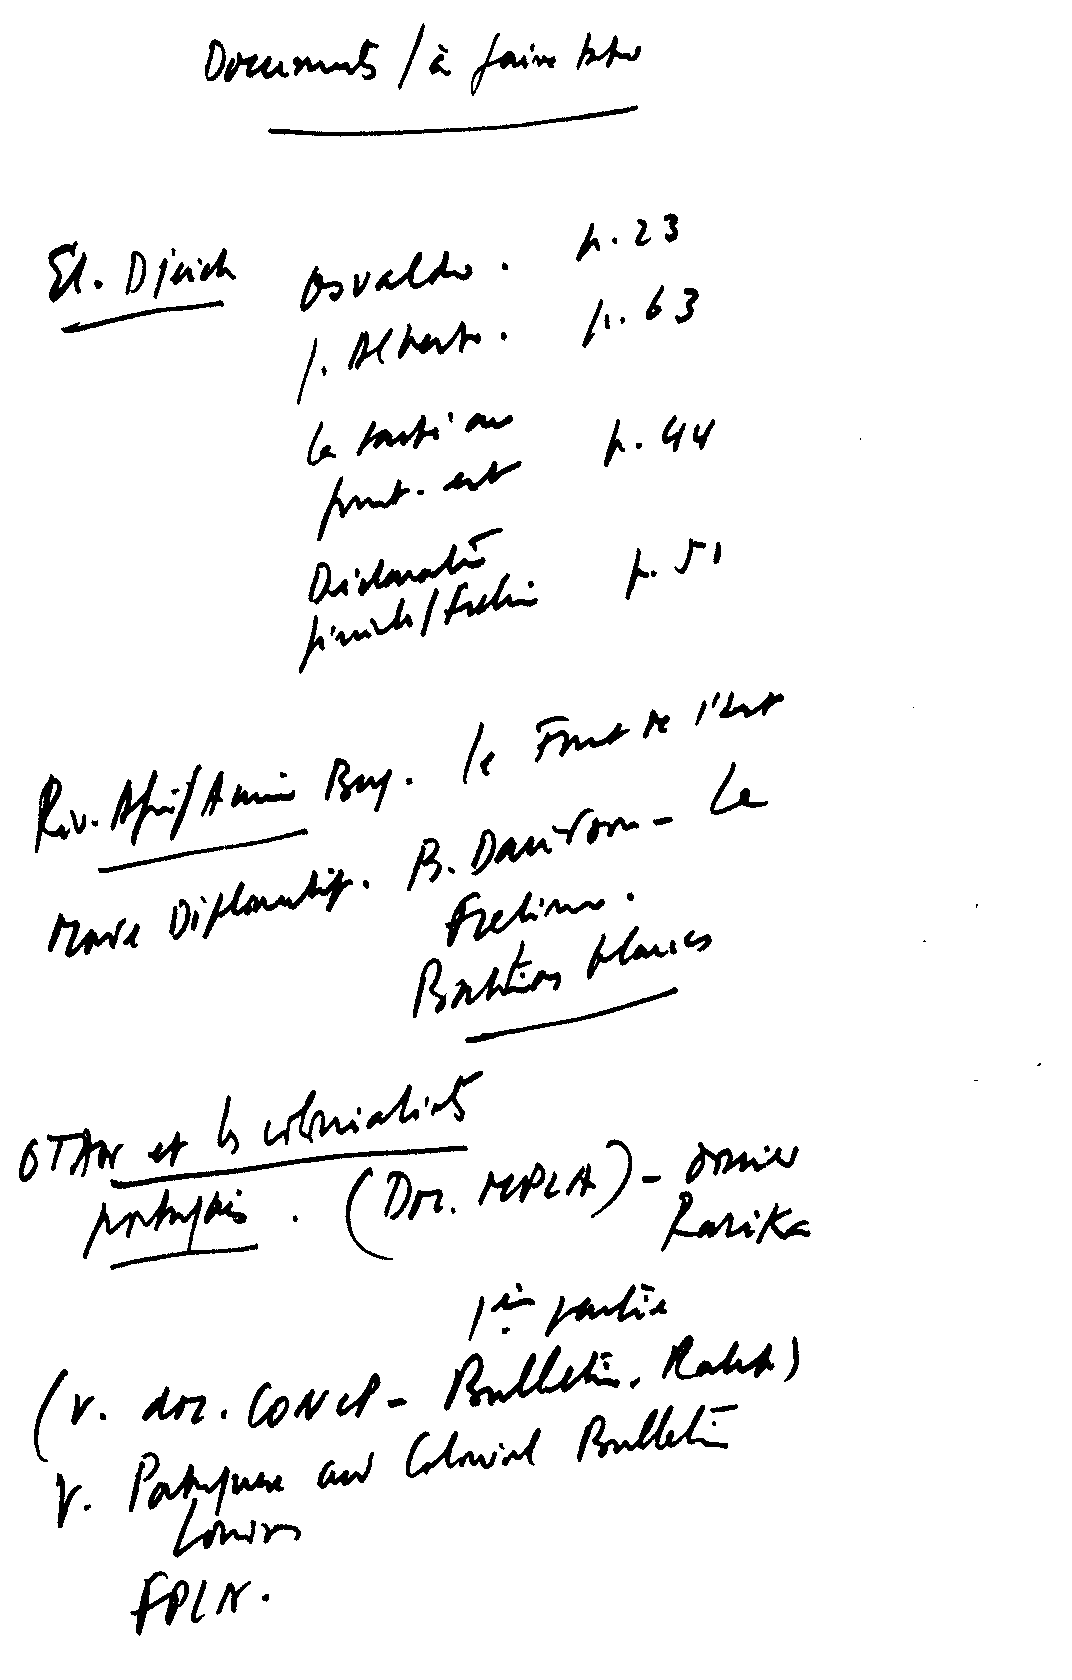 Documents / à faire
El. Djeich Osvaldo. p. 23
J. Alberto. p. 63
front. est p. 44
Déclaration
finale/Frelimo p. 51
Rév. Afri/Amérin Boy. le Front de l'est
Monde Diplomatiq. B. Davidson - Le
Frelimo.
Bastions blancs
OTAN et les colonialistes
portugais. (Doc. MPLA) - dossier
1ère partie
(V. doc. CONCP - Bulletin, Rabat)
V. Portuguese and Colonial Bulletin
Londres
FPLN.